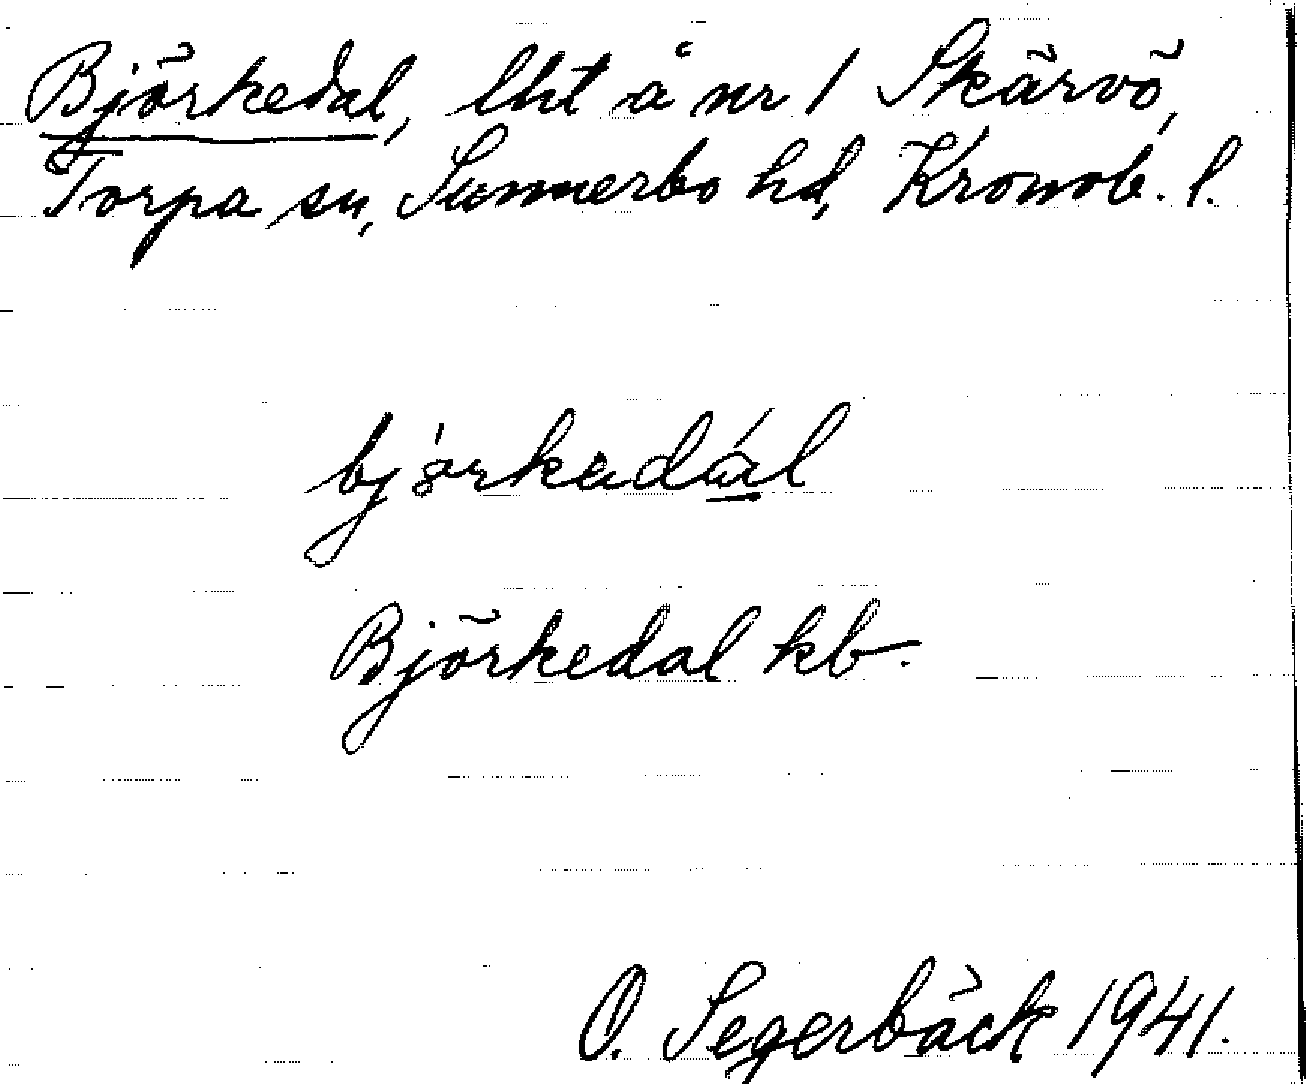 Björkedal, lht å nr 1 Skärvö,
Torpa sn, Sunnerbo hd, Kronob. l.
bjö̀rkadál
Björkedal kb.
O. Segerbäck 1941.